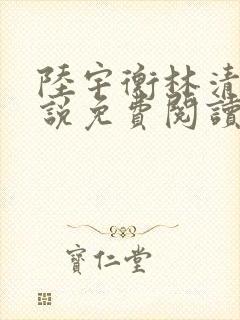 陸宇衡林清
說免費閱讀
寶仁堂